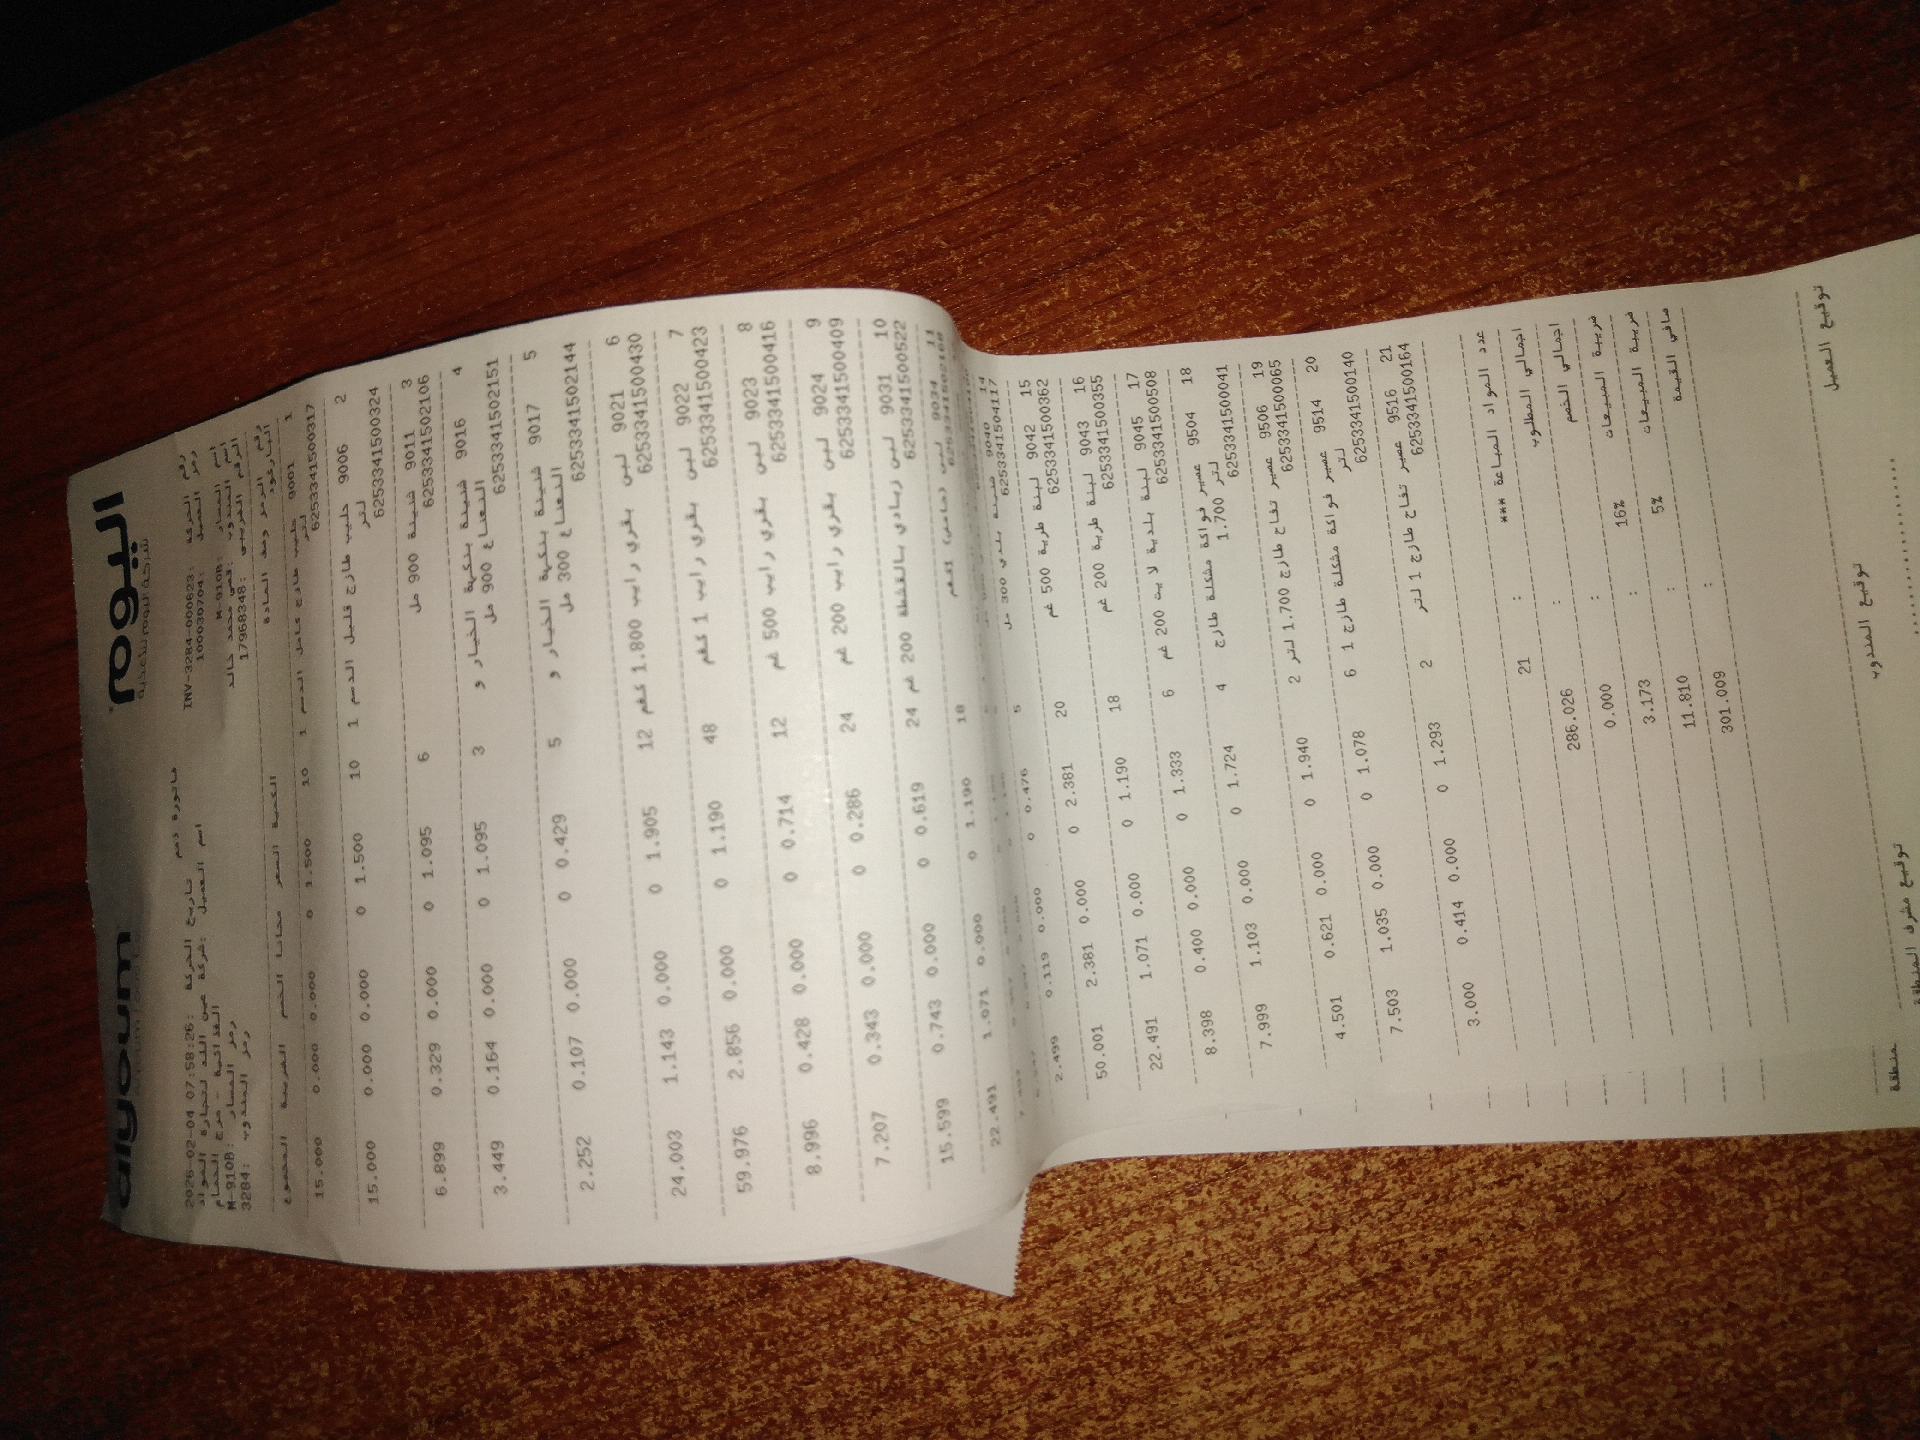 اليوم alyoum
شركة اليوم للأغذية
فاتورة ذمم
رقم الحركة :INV-3284-000623 تاريخ الحركة :2026-02-04 07:58:26
رمز العميل :100030704 اسم العميل :شركة عين اللد لتجارة المواد
الغذائية - مرج الحمام
اسم المسار :M-910B رمز المسار :M-910B
اسم المندوب :قصي محمد خالد رمز المندوب :3284
الرقم الضريبي :17968348
رقم الرمز وصف المادة الكمية السعر مجانا الخصم الضريبة المجموع
الباركود
1 9001 حليب طازج كامل الدسم 1 10 1.500 0 0.000 0.000 15.000
لتر
6253341500317
2 9006 حليب طازج قليل الدسم 1 10 1.500 0 0.000 0.000 15.000
لتر
6253341500324
3 9011 شنينة 900 مل 6 1.095 0 0.000 0.329 6.899
6253341502106
4 9016 شنينة بنكهة الخيار و 3 1.095 0 0.000 0.164 3.449
النعناع 900 مل
6253341502151
5 9017 شنينة بنكهة الخيار و 5 0.429 0 0.000 0.107 2.252
النعناع 300 مل
6253341502144
6 9021 لبن بقري رايب 1.800 كغم 12 1.905 0 0.000 1.143 24.003
6253341500430
7 9022 لبن بقري رايب 1 كغم 48 1.190 0 0.000 2.856 59.976
6253341500423
8 9023 لبن بقري رايب 500 غم 12 0.714 0 0.000 0.428 8.996
6253341500416
9 9024 لبن بقري رايب 200 غم 24 0.286 0 0.000 0.343 7.207
6253341500409
10 9031 لبن زبادي بالقشطة 200 غم 24 0.619 0 0.000 0.743 15.599
6253341500522
11 9034 لبن 18 1.190 0 0.000 1.071 22.491
14 9040 شنينة بلدي 300 مل 5 0.476 0 0.000 0.119 2.499
6253341504117
15 9042 لبنة طرية 500 غم 20 2.381 0 0.000 2.381 50.001
6253341500362
16 9043 لبنة طرية 200 غم 18 1.190 0 0.000 1.071 22.491
6253341500355
17 9045 لبنة بلدية لا يت 200 غم 6 1.333 0 0.000 0.400 8.398
6253341500508
18 9504 عصير فواكة مشكلة طازج 4 1.724 0 0.000 1.103 7.999
1.700 لتر
6253341500041
19 9506 عصير تفاح طازج 1.700 لتر 2 1.940 0 0.000 0.621 4.501
6253341500065
20 9514 عصير فواكة مشكلة طازج 1 6 1.078 0 0.000 1.035 7.503
لتر
6253341500140
21 9516 عصير تفاح طازج 1 لتر 2 1.293 0 0.000 0.414 3.000
6253341500164
عدد المواد المباعة *** : 21
اجمالي المطلوب : 286.026
اجمالي الخصم : 0.000
ضريبة المبيعات 16% : 3.173
ضريبة المبيعات 5% : 11.810
صافي القيمة : 301.009
توقيع العميل توقيع المندوب توقيع مشرف المنطقة
منطقة